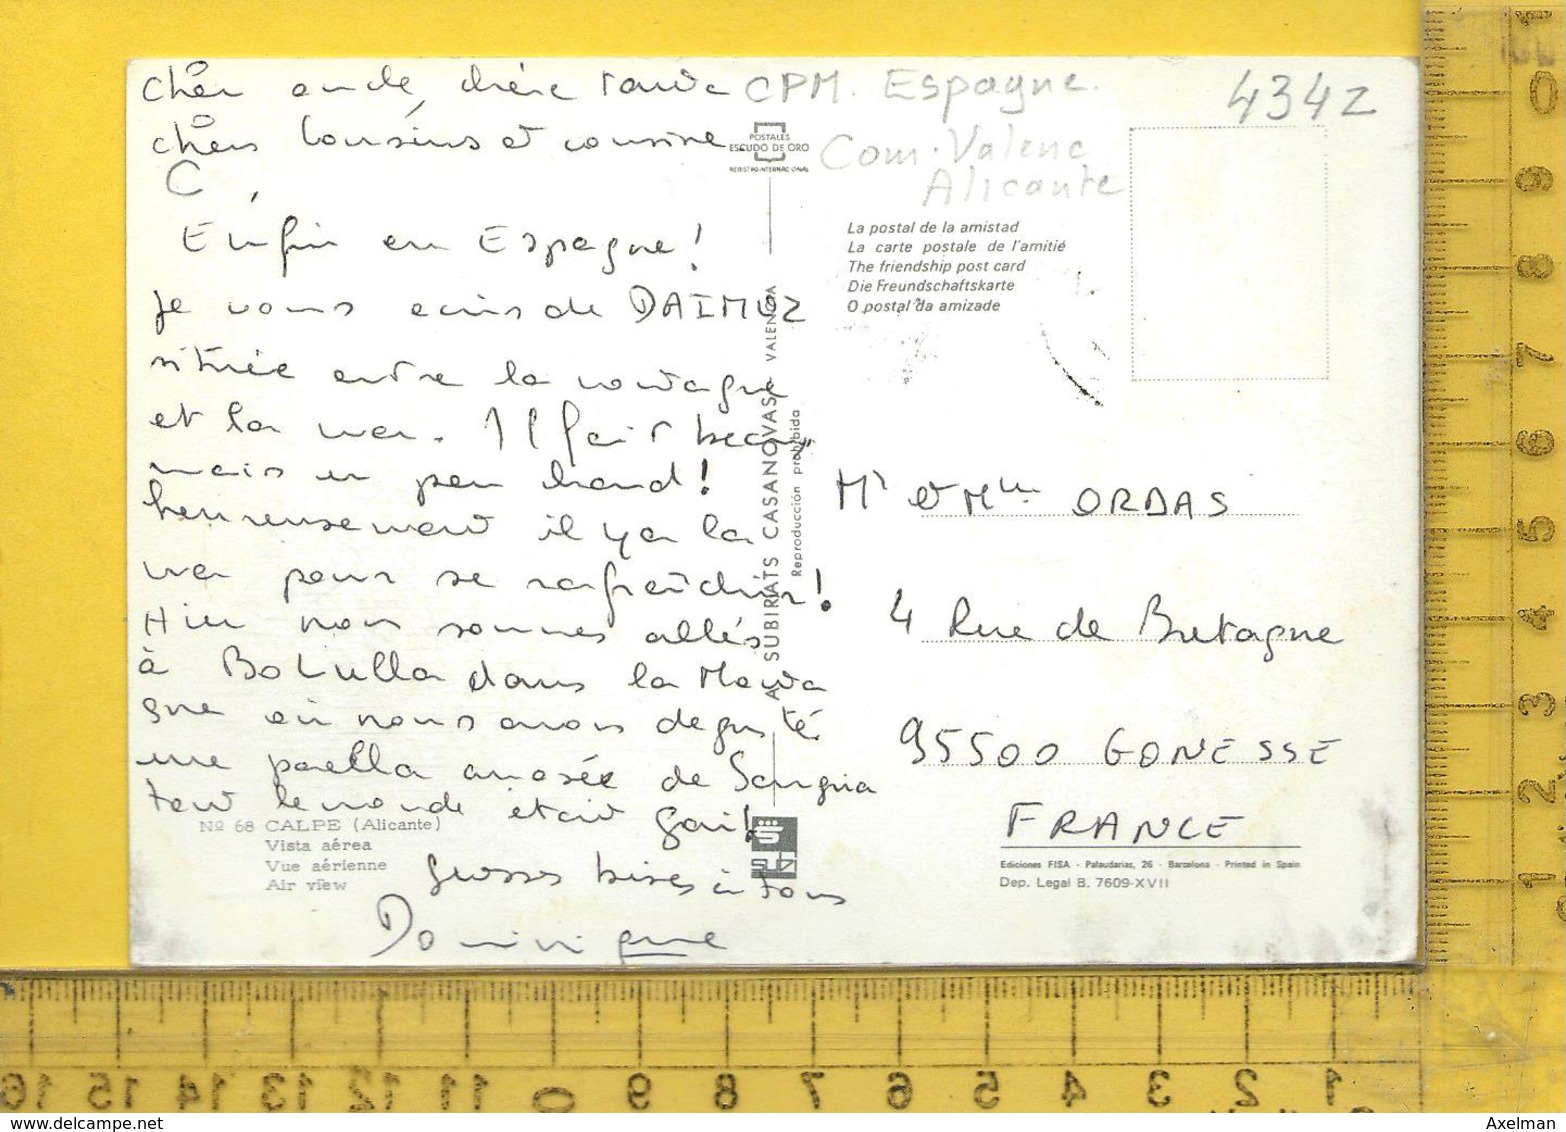 Chèr oncle, chère tante
chers Cousins et cousine
C
Enfin en Espagne!
je vous ecris de DAIMUZ
située entre la montagne
et la mer. Il fait beau,
mais un peu chaud!
heureusement il y a la
mer pour se rafraîchir!
Hier nous sommes allés
à Bolulla dans la Monta
gne où nous avons degusté
une paella arrosée de Sangria
tout le monde était gai!
Grosses bises à tous
Dominique
CPM. Espagne.
Com. Valenc
Alicante
4342
POSTALES
ESCUDO DE ORO
REGISTRO INTERNACIONAL
La postal de la amistad
La carte postale de l'amitié
The friendship post card
Die Freundschaftskarte
O postal da amizade
A. SUBIRATS CASANOVAS VALENCIA
Reproducción prohibida
Mr et Mme ORDAS
4 Rue de Bretagne
95500 GONESSE
FRANCE
Ediciones FISA - Palaudarias, 26 - Barcelona - Printed in Spain
Dep. Legal B. 7609-XVII
Nº 68 CALPE (Alicante)
Vista aérea
Vue aérienne
Air view
sub
0
9
8
7
6
5
4
3
2
1
16 15 14 13 12 11 0 9 8 7 6 5 4 3 2 1
www.delcampe.net
Axelman